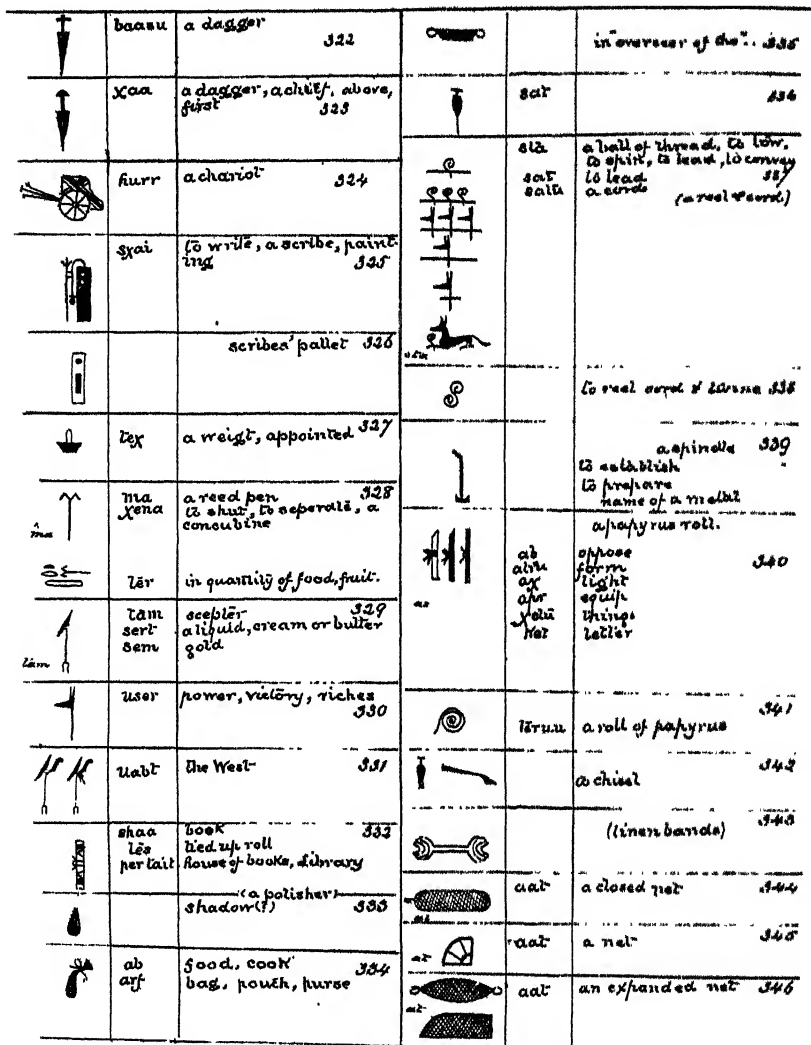 baasu a dagger 322
χaa a dagger, a chief, above,
first 323
hurr a chariot 324
sχai to write, a scribe, paint-
ing 325
scribes' pallet 326
teχ a weigt, appointed 327
ma a reed pen 328
χena to shut, to seperate, a
concubine
ma
ter in quantity of food, fruit.
tam scepter 329
sert a liquid, cream or butter
sem gold
tam
user power, victory, riches
330
uabt the West 331
shaa book 332
tes tied up roll
per tait house of books, Library
(a polisher)
shadow(?) 333
ab food, cook 334
arf bag, pouch, purse
in "overseer of the" .. 335
sat 336
sta a ball of thread, to tow,
to spin, to lead, to convey
sat to lead 337
satu a cord (a reel & cord)
to reel cord & twine 338
a spindle 339
to establish
to prepare
name of a metal
a papyrus roll.
ab oppose 340
form
aχ light
apr equip
things
letter
teruu a roll of papyrus 341
a chisel 342
(linen bands) 343
aat a closed net 344
aat a net 345
at
aat an expanded net 346
at